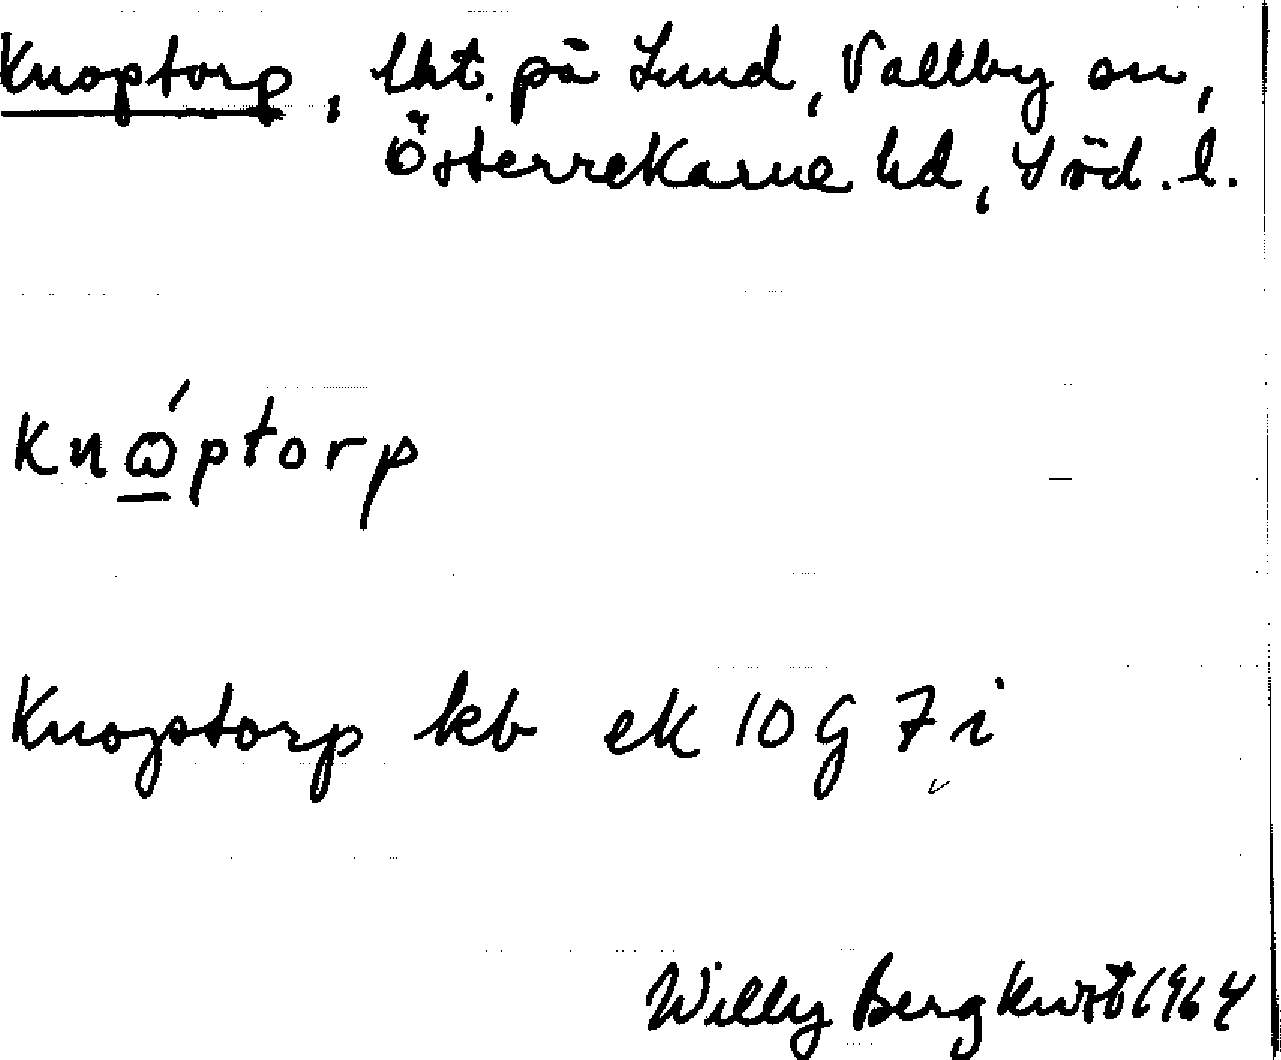 Knoptorp, lht. på Lund, Vallby sn,
Österrekarne hd, Söd. l.
knώ̲ptorp
Knoptorp kb ek 10G 7i
Willy Bergkvist 1964